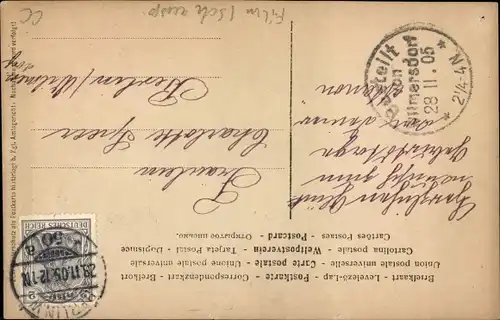 Breitkaart — Levelező-Lap — Postkarte — Correspondenzkart — Brefkort
Union postale universelle — Carte postale — Unione postale universale
Cartolina postale — Weltpostverein — Tarjeta Postal — Dopisnice
Cartões Postaes — Postcard — Открытое письмо.
Fräulein
Charlotte Speer
Berlin/Wilmersdorf
Herzlichen Glück
wunsch zum
Geburtstage
Bestellt
von
Wilmersdorf
28 11. 05
* N 2¼-4 *
DEUTSCHES REICH
2
BERLIN.W.
28.11.05.12-1N
* 50 a
Film / Schausp
CC